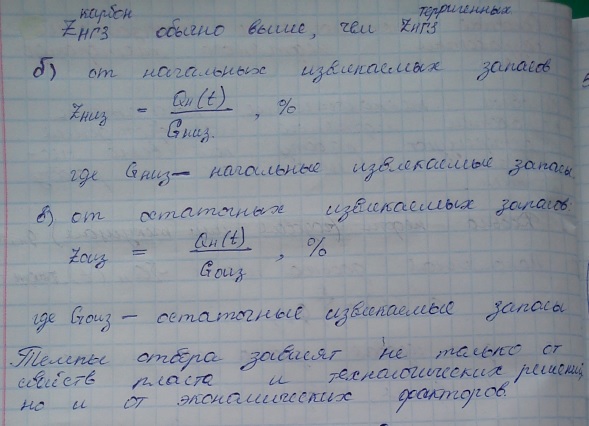 Z_НГЗ^карбон обычно выше, чем Z_НГЗ^терригенных
б) от начальных извлекаемых запасов
Z_низ = Qн(t) / G_низ. , %
где G_низ – начальные извлекаемые запасы.
в) от остаточных извлекаемых запасов
Z_оиз = Qн(t) / G_оиз , %
где G_оиз – остаточные извлекаемые запасы
Темпы отбора зависят не только от
свойств пласта и технологических решений,
но и от экономических факторов.